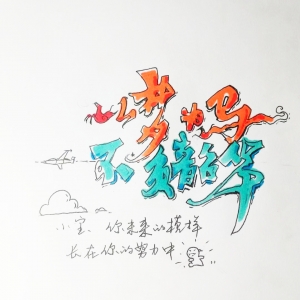 以梦为马
不负韶华
小宝、你未来的模样
长在你的努力中